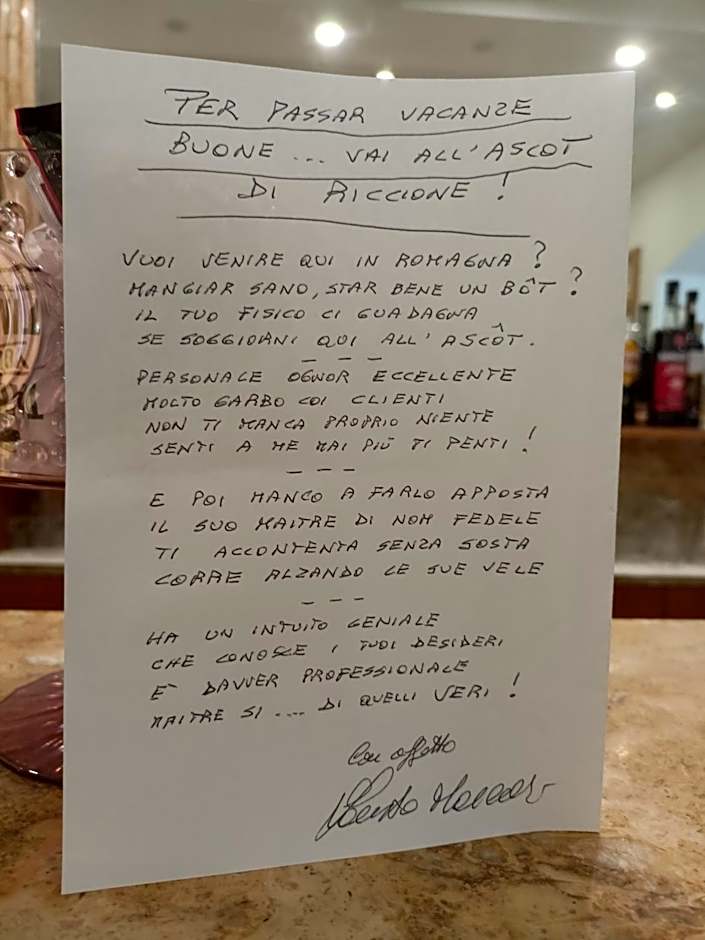 PER PASSAR VACANZE
BUONE ... VAI ALL'ASCOT
DI RICCIONE !
VUOI VENIRE QUI IN ROMAGNA ?
MANGIAR SANO, STAR BENE UN BÔT ?
IL TUO FISICO CI GUADAGNA
SE SOGGIORNI QUI ALL'ASCÔT.
- - -
PERSONALE OGNOR ECCELLENTE
MOLTO GARBO COI CLIENTI
NON TI MANCA PROPRIO NIENTE
SENTI A ME MAI PIÙ TI PENTI !
- - -
E POI MANCO A FARLO APPOSTA
IL SUO MAITRE DI NOM FEDELE
TI ACCONTENTA SENZA SOSTA
CORRE ALZANDO LE SUE VELE
- - -
HA UN INTUITO GENIALE
CHE CONOSCE I TUOI DESIDERI
E' DAVVER PROFESSIONALE
MAITRE SI .... DI QUELLI VERI !
Con affetto